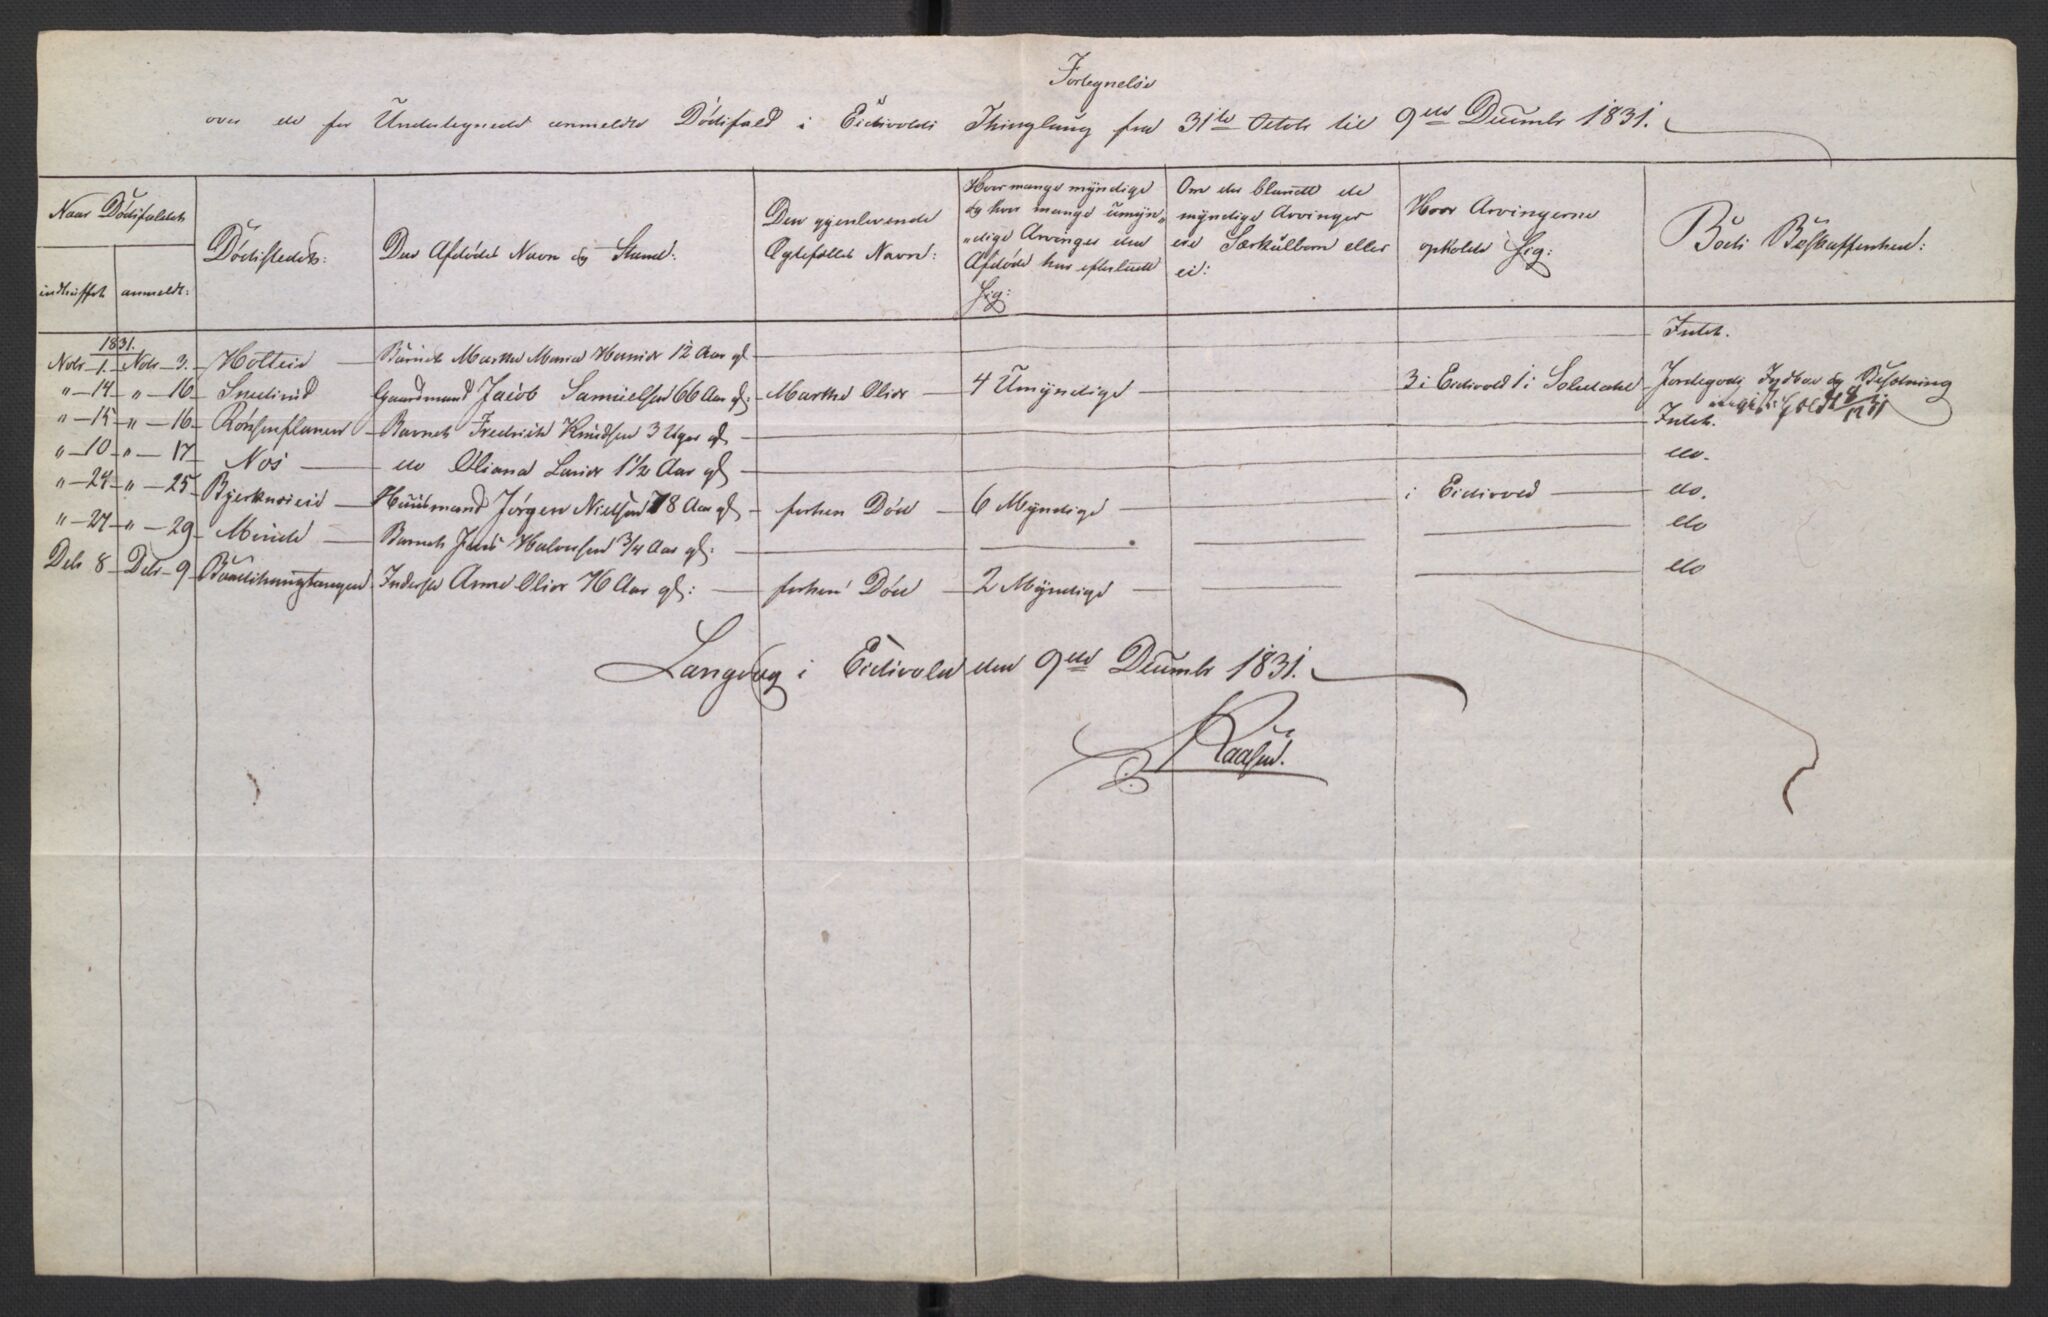 Fortegnelse
over de for Undertegnede anmeldte Dødsfald i Eidsvolds Thinglaug fra 31te Octob til 9de Decembr 1831.
Naar Dødsfaldet
indtruffet
anmeldt:
Dødsstedet:
Den Afdødes Navn og Stand:
Den gjenlevende
Ægtefælles Navn:
Hvor mange myndige
og hvor mange umyn„
„dige Arvinger den
Afdøde har efterladt
sig:
Om der blandt de
myndige Arvinger
ere Særkulbørn eller
ei:
Hvor Arvingerne
opholde sig:
Boets Beskaffenhed:
1831.
Novbr 1. Novbr 3. Holteie Barnet Marthe Maria 12 Aar gl Intet.
" 14 " 16 Gaardmand Jacob Samuelsen 66 Aar gl: Marthe Olsdr 4 Umyndige 3 i Eidsvold 1 i Jordegods Indboe og Besætning
8/12 31
" 15 " 16 Barnet Fredrich Knudsen 3 Uger gl Intet.
" 10 " 17 Nos do Oliana Larsdr 1 1/2 Aar gl do.
" 24 " 25 Huusmand Jørgen Nielsen 78 Aar gl forhen Død 6 Myndige i Eidsvold do.
" 27 " 29 Minde Barnet Jens Halvorsen 3/4 Aar gl: do
Decbr 8 Decbr 9 Inderste Anne Olsdr Aar gl: forhen Død 2 Myndige do
Langvog i Eidsvold den 9de Decembr 1831.
Kaasen.